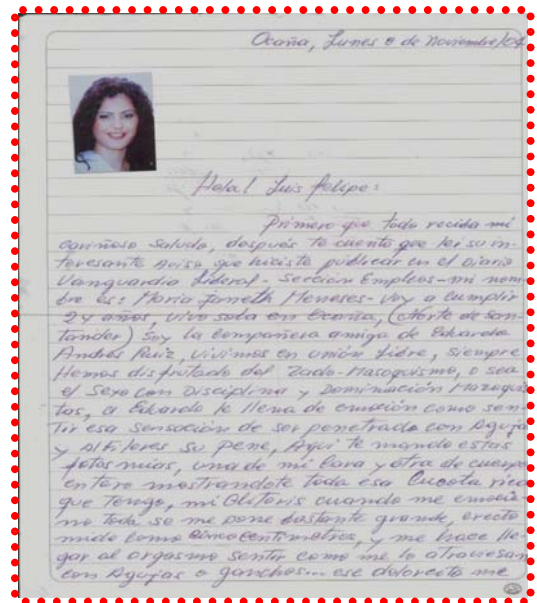 Ocaña, Lunes 8 de Noviembre/04
Hola! Luis Felipe:
Primero que todo reciba mi
cariñoso saludo, después te cuento que leí su in-
teresante Aviso que hiciste publicar en el Diario
Vanguardia Liberal - Sección Empleos - mi nom
bre es: María Janeth Meneses - voy a cumplir
24 años, vivo sola en Ocaña, (Norte de San-
tander) Soy la compañera amiga de Eduardo
Andrés Ruiz, vivimos en unión libre, siempre
Hemos disfrutado del Zado-Masoquismo, o sea
el Sexo con Disciplina y Dominación Mazoquis
tas, a Eduardo le llena de emoción como sen-
Tir esa sensación de ser penetrado con Aguja
y Alfileres su pene, Aquí te mando estas
fotos mías, una de mi Cara y otra de cuerpo
entero mostrandote toda esa Cucota rica
que Tengo, mi Clítoris cuando me emocio-
no toda se me pone bastante grande, erecto
mido como cinco centímetros, y me hace lle-
gar al orgasmo sentir como me lo atraviesan
con Agujas o ganchos... ese dolorcito me